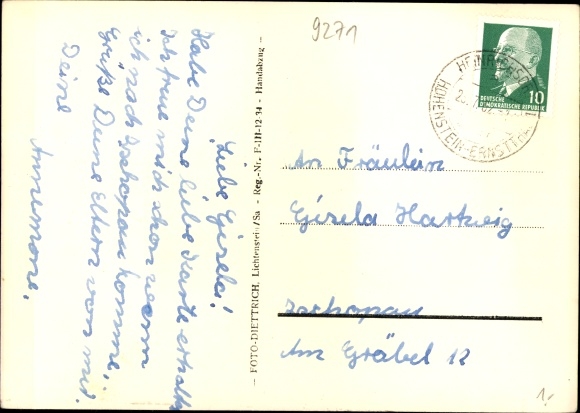 Liebe Gisela!
Habe Deine liebe Karte erhalten
Ich freue mich schon wenn
ich nach Zschopau komme,
Grüße Deine Eltern von mir.
Deine
Annemone,
— FOTO-DIETTRICH, Lichtenstein/Sa - Reg.-Nr. F-III-12-34 - Handabzug —
9271
DEUTSCHE
DEMOKRATISCHE REPUBLIK
10
HOHENSTEIN-ERNSTTHAL
An Fräulein
Gisela Hartwig
Zschopau
Am Gräbel 12
1.-